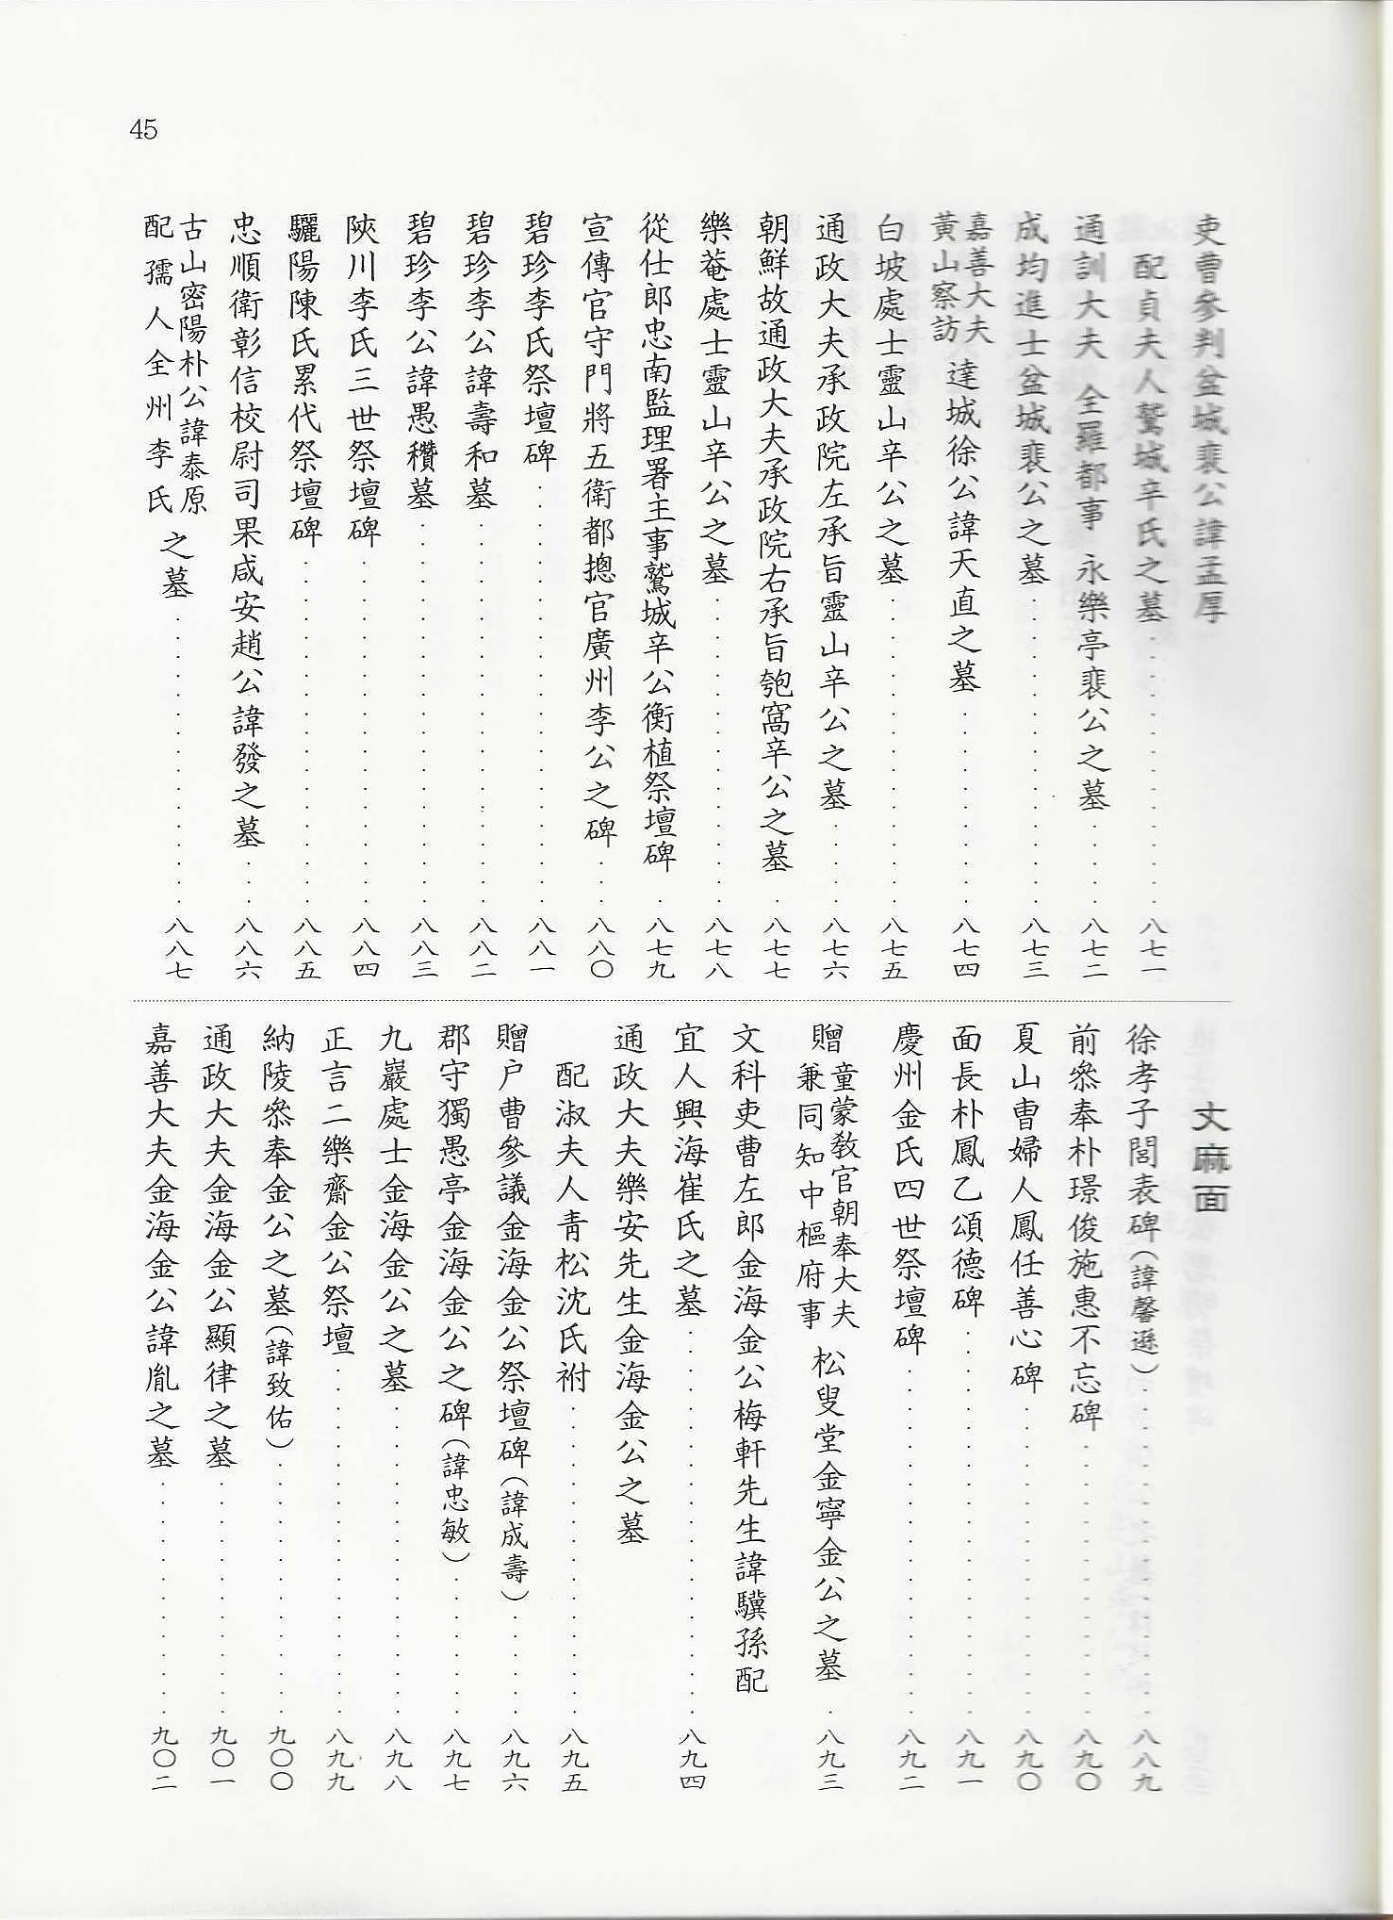 45
吏曹參判盆城裵公諱孟厚
配貞夫人鷲城辛氏之墓 八七一
通訓大夫 全羅都事 永樂亭裵公之墓 八七二
成均進士盆城裵公之墓 八七三
嘉善大夫
黃山察訪
達城徐公諱天直之墓 八七四
白坡處士靈山辛公之墓 八七五
通政大夫承政院左承旨靈山辛公之墓 八七六
朝鮮故通政大夫承政院右承旨匏窩辛公之墓 八七七
樂菴處士靈山辛公之墓 八七八
從仕郎忠南監理署主事鷲城辛公衡植祭壇碑 八七九
宣傳官守門將五衛都摠官廣州李公之碑 八八〇
碧珍李氏祭壇碑 八八一
碧珍李公諱壽和墓 八八二
碧珍李公諱愚穳墓 八八三
陜川李氏三世祭壇碑 八八四
驪陽陳氏累代祭壇碑 八八五
忠順衛彰信校尉司果咸安趙公諱發之墓 八八六
古山密陽朴公諱泰原
配孺人全州李氏
之墓 八八七
丈麻面
徐孝子閭表碑(諱馨遜) 八八九
前參奉朴璟俊施惠不忘碑 八九〇
夏山曺婦人鳳任善心碑 八九〇
面長朴鳳乙頌德碑 八九一
慶州金氏四世祭壇碑 八九二
贈
童蒙敎官朝奉大夫
兼同知中樞府事
松叟堂金寧金公之墓 八九三
文科吏曹左郎金海金公梅軒先生諱驥孫配
宜人興海崔氏之墓 八九四
通政大夫樂安先生金海金公之墓
配淑夫人靑松沈氏祔 八九五
贈戶曹參議金海金公祭壇碑(諱成壽) 八九六
郡守獨愚亭金海金公之碑(諱忠敏) 八九七
九巖處士金海金公之墓 八九八
正言二樂齋金公祭壇 八九九
納陵參奉金公之墓(諱致佑) 九〇〇
通政大夫金海金公顯律之墓 九〇一
嘉善大夫金海金公諱胤之墓 九〇二